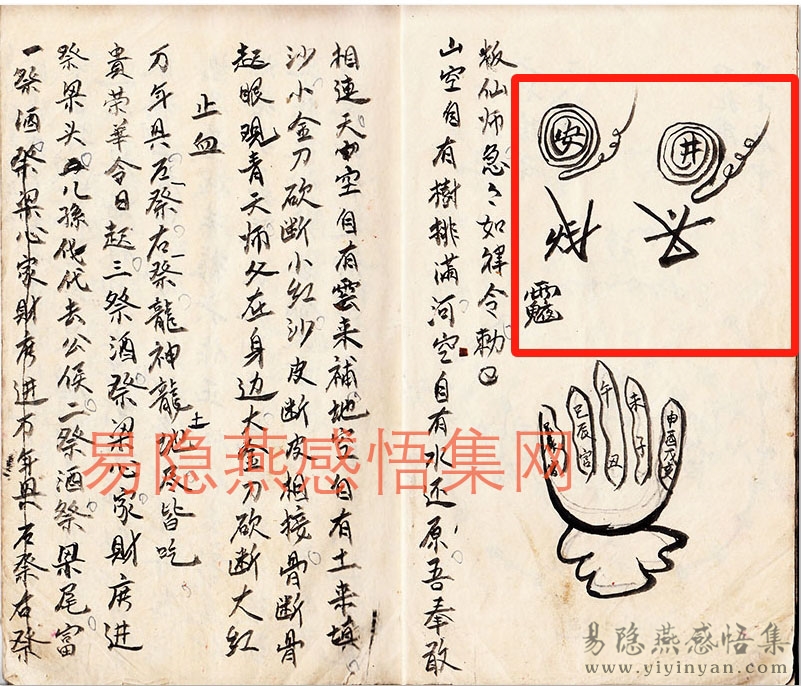 一祭酒祭梁心家財广进万年具石祭右祭
祭梁头儿孫伐代去公侯二祭酒祭梁尾富
貴荣華今日起三祭酒祭梁心家財广进
万年具石祭右祭龍神龍土地尽皆吃
止血
起眼观青天师父在身边大金刀砍断大红
沙小金刀砍断小红沙皮断皮相接骨断骨
相連天空自有雲来補地空自有土来填
山空自有樹排滿河空自有水还原吾奉敢
板仙师急々如律令勅
安
井
巳辰宫
午丑
未子
申酉戌亥
易隐燕感悟集网
易隐燕感悟集
www.yiyinyan.com